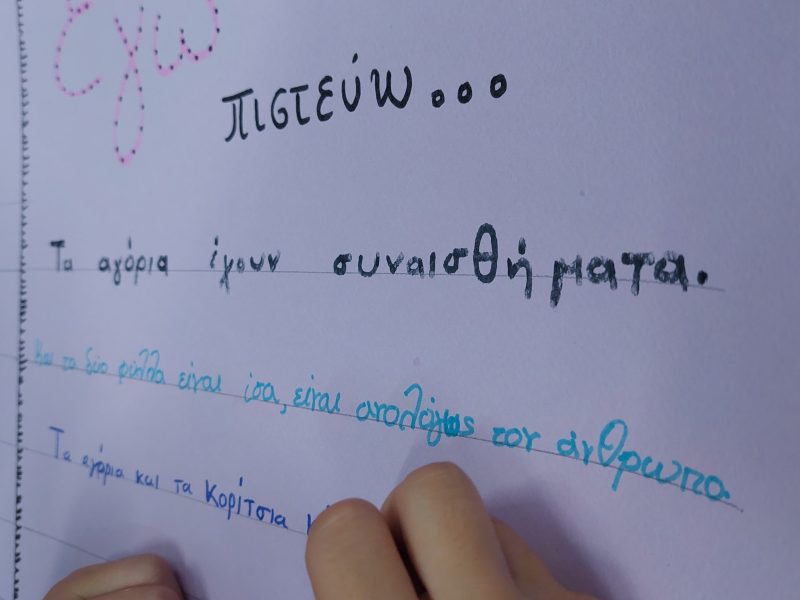 Εγω
πιστεύω...
Τα αγόρια έχουν συναισθήματα.
Και τα δύο φύλλα είναι ίσα, είναι αναλόγως τον άνθρωπο.
Τα αγόρια και τα κορίτσια